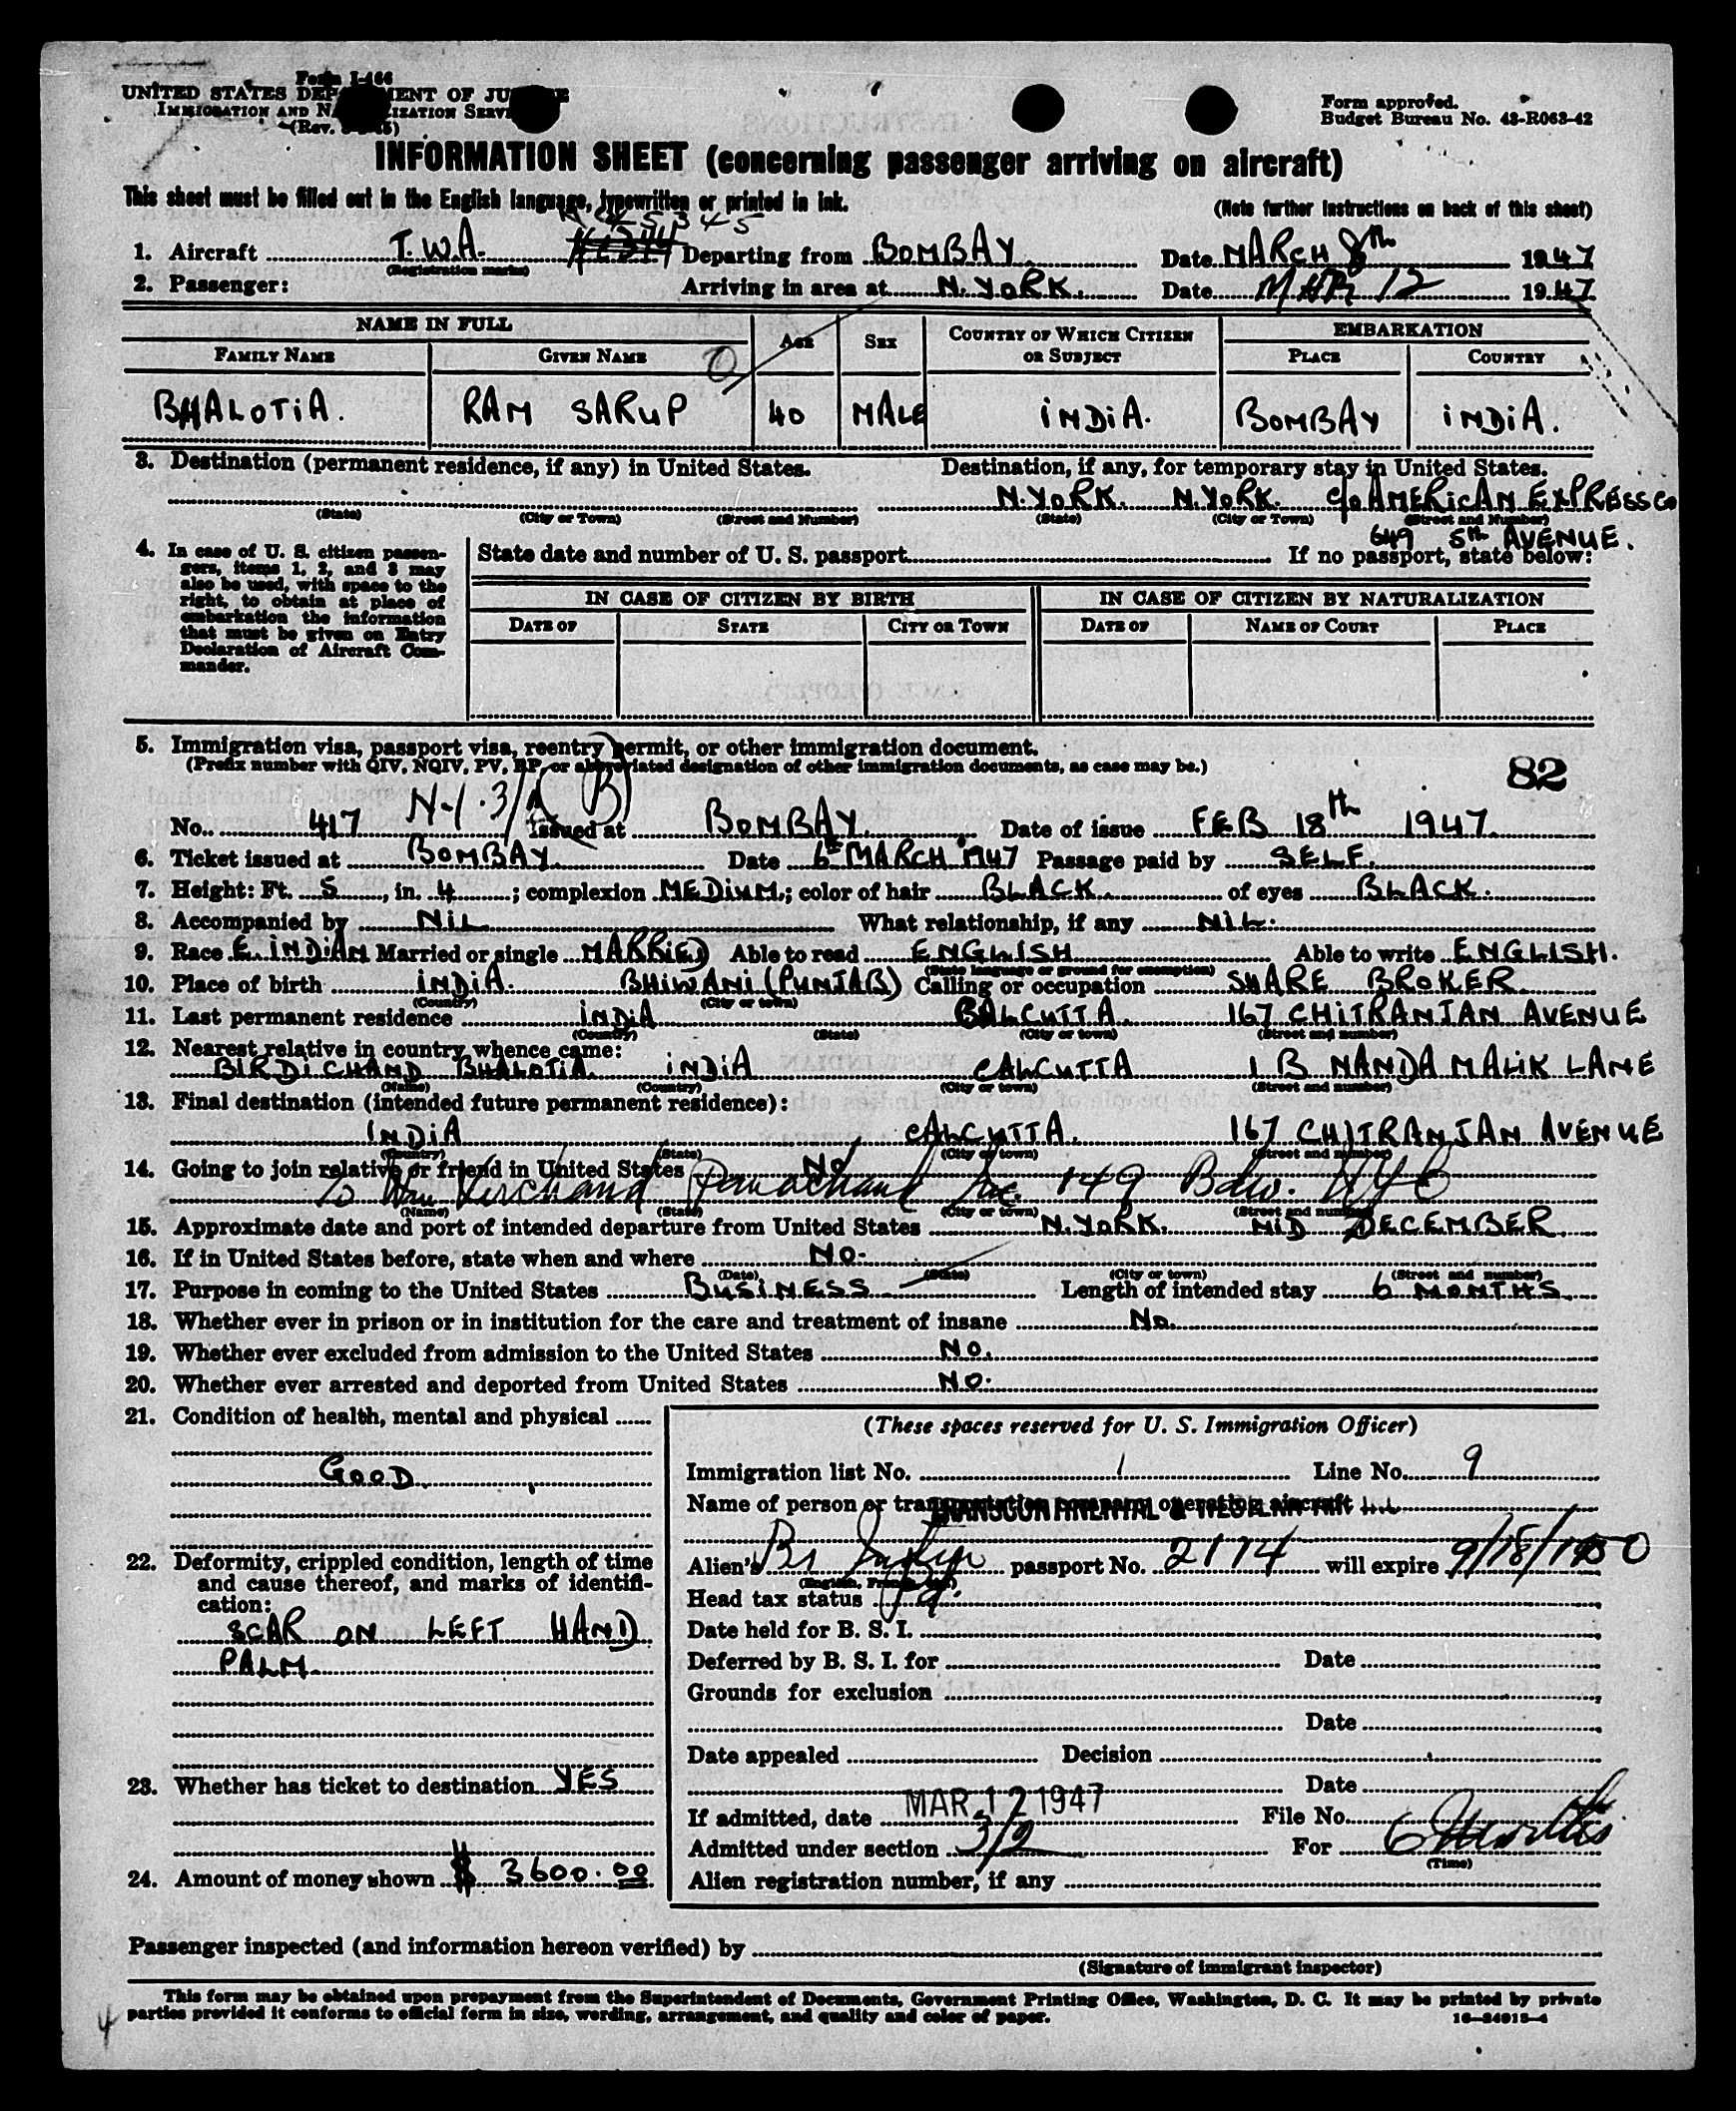 Form I-466
UNITED STATES DEPARTMENT OF JUSTICE
IMMIGRATION AND NATURALIZATION SERVICE
(Rev.
Form approved.
Budget Bureau No. 43-R063-42
INFORMATION SHEET (concerning passenger arriving on aircraft)
This sheet must be filled out in the English language, typewritten or printed in ink.
(Note further instructions on back of this sheet)
45345
1. Aircraft T.W.A. Departing from BOMBAY. Date MARCH 8th 1947
(Registration marks)
2. Passenger: Arriving in area at N. YORK. Date MAR 12 1947
NAME IN FULL AGE SEX COUNTRY OF WHICH CITIZEN OR SUBJECT EMBARKATION
FAMILY NAME GIVEN NAME PLACE COUNTRY
BHALOTIA. RAM SARUP 40 MALE INDIA. BOMBAY INDIA.
3. Destination (permanent residence, if any) in United States. Destination, if any, for temporary stay in United States.
N. YORK. N. YORK. c/o AMERICAN EXPRESS CO
(State) (City or Town) (Street and Number) (State) (City or Town) (Street and Number)
649 5th AVENUE.
4. In case of U. S. citizen passengers, items 1, 2, and 3 may also be used, with space to the right, to obtain at place of embarkation the information that must be given on Entry Declaration of Aircraft Commander.
State date and number of U. S. passport If no passport, state below:
IN CASE OF CITIZEN BY BIRTH IN CASE OF CITIZEN BY NATURALIZATION
DATE OF STATE CITY OR TOWN DATE OF NAME OF COURT PLACE
5. Immigration visa, passport visa, reentry permit, or other immigration document.
(Prefix number with QIV, NQIV, PV, RP, or abbreviated designation of other immigration documents, as case may be.)
82
No. 417 (B) Issued at BOMBAY. Date of issue FEB 18th 1947
6. Ticket issued at BOMBAY. Date 6th MARCH 1947 Passage paid by SELF.
7. Height: Ft. 5, in. 4; complexion MEDIUM; color of hair BLACK. of eyes BLACK.
8. Accompanied by NIL What relationship, if any NIL.
9. Race E. INDIAN Married or single MARRIED Able to read ENGLISH Able to write ENGLISH.
(State language or ground for exemption)
10. Place of birth INDIA. BHIWANI (PUNJAB) Calling or occupation SHARE BROKER
(Country) (City or town)
11. Last permanent residence INDIA CALCUTTA. 167 CHITRANJAN AVENUE
(Country) (State) (City or town) (Street and number)
12. Nearest relative in country whence came:
BIRDICHAND BHALOTIA. INDIA CALCUTTA 1 B NANDA MALIK LANE
(Name) (Country) (City or town) (Street and number)
13. Final destination (intended future permanent residence):
INDIA CALCUTTA. 167 CHITRANJAN AVENUE
(Country) (State) (City or town) (Street and number)
14. Going to join relative or friend in United States No
Inc. 149 Bdw. NYC
(Name) (State) (City or town) (Street and number)
15. Approximate date and port of intended departure from United States N. YORK. MID DECEMBER.
16. If in United States before, state when and where NO.
(Date) (State) (City or town) (Street and number)
17. Purpose in coming to the United States BUSINESS Length of intended stay 6 MONTHS.
18. Whether ever in prison or in institution for the care and treatment of insane No.
19. Whether ever excluded from admission to the United States NO.
20. Whether ever arrested and deported from United States NO.
21. Condition of health, mental and physical
GOOD.
22. Deformity, crippled condition, length of time and cause thereof, and marks of identification:
SCAR ON LEFT HAND
PALM.
23. Whether has ticket to destination YES
24. Amount of money shown $ 3600.00
(These spaces reserved for U. S. Immigration Officer)
Immigration list No. 1 Line No. 9
Name of person or transportation company operating aircraft
TRANSCONTINENTAL & WESTERN AIR Inc
Alien's passport No. 2174 will expire 9/18/1950
(English, French, etc.)
Head tax status
Date held for B. S. I.
Deferred by B. S. I. for Date
Grounds for exclusion
Date
Date appealed Decision
Date
If admitted, date MAR 12 1947 File No.
Admitted under section 3/2 For 6 months
(Time)
Alien registration number, if any
Passenger inspected (and information hereon verified) by
(Signature of immigrant inspector)
This form may be obtained upon prepayment from the Superintendent of Documents, Government Printing Office, Washington, D. C. It may be printed by private
parties provided it conforms to official form in size, wording, arrangement, and quality and color of paper.
16-24915-4
4